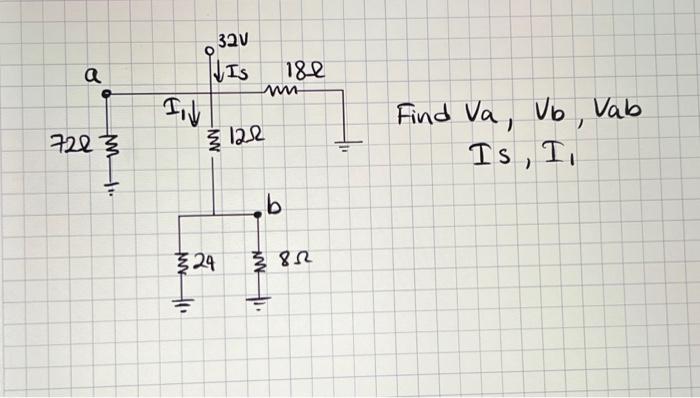 32V
Is
18Ω
a
I₁
72Ω
12Ω
Find Va, Vb, Vab
Is, I₁
b
24
8Ω